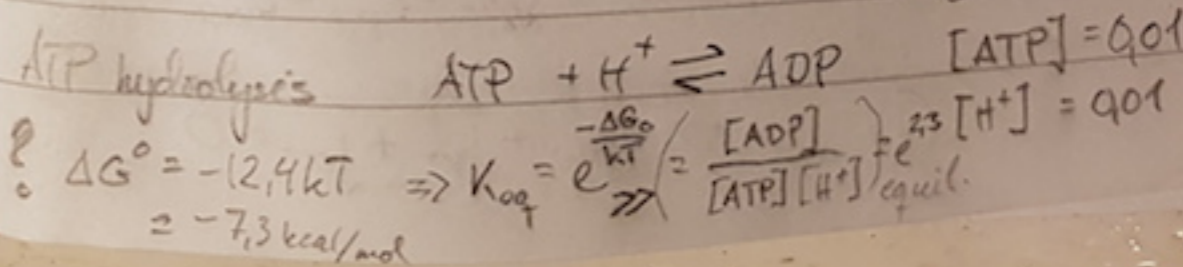 ATP hydrolysis ATP + H⁺ ⇌ ADP [ATP] = 0,01
? ΔG° = -12,4kT => K_eq = e^(-ΔG₀/kT) >> ( = [ADP] / [ATP][H⁺] )equil. = e^2,3 [H⁺] = 0,01
= -7,3 kcal/mol